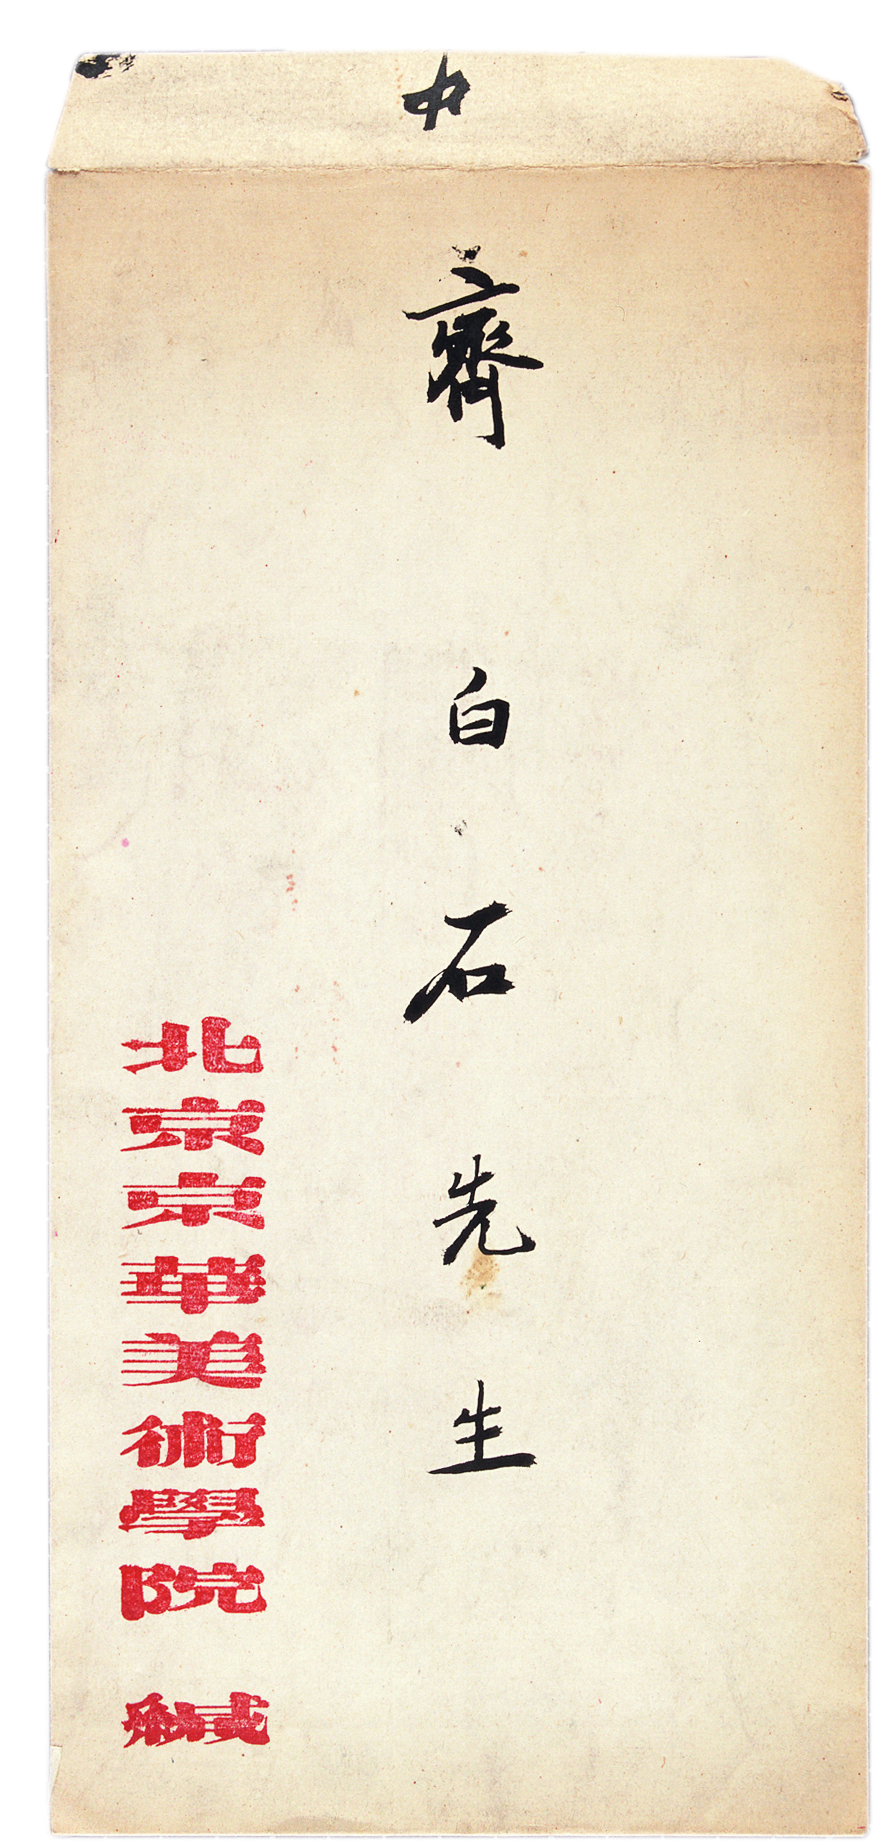 中
齊白石先生
北京京華美術學院 緘